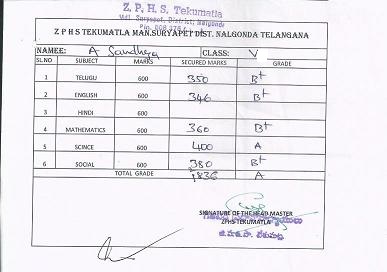 Z, P, H, S, Tekumatla
Z P H S TEKUMATLA MAN.SURYAPET DIST. NALGONDA TELANGANA
NAMEE: A Sandhya CLASS: V
SL.NO SUBJECT MARKS SECURED MARKS GRADE
1 TELUGU 600 350 B+
2 ENGLISH 600 346 B+
3 HINDI 600
4 MATHEMATICS 600 360 B+
5 SCINCE 600 400 A
6 SOCIAL 600 380 B+
TOTAL GRADE 1836 A
SIGNATURE OF THE HEAD MASTER
ZPHS TEKUMATLA